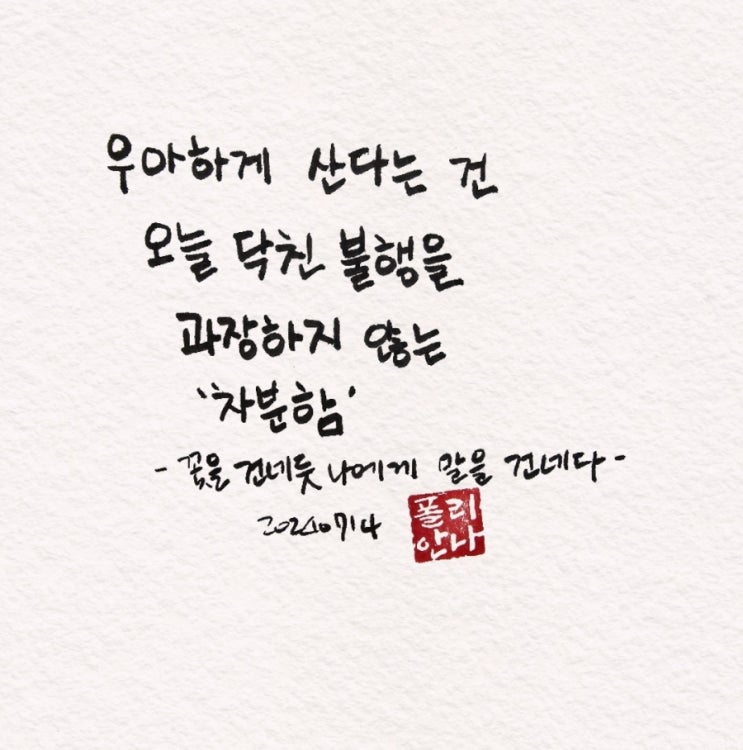 우아하게 산다는 건
오늘 닥친 불행을
과장하지 않는
'차분함'
- 꽃을 건네듯 나에게 말을 건네다 -
20240714
폴리
안나